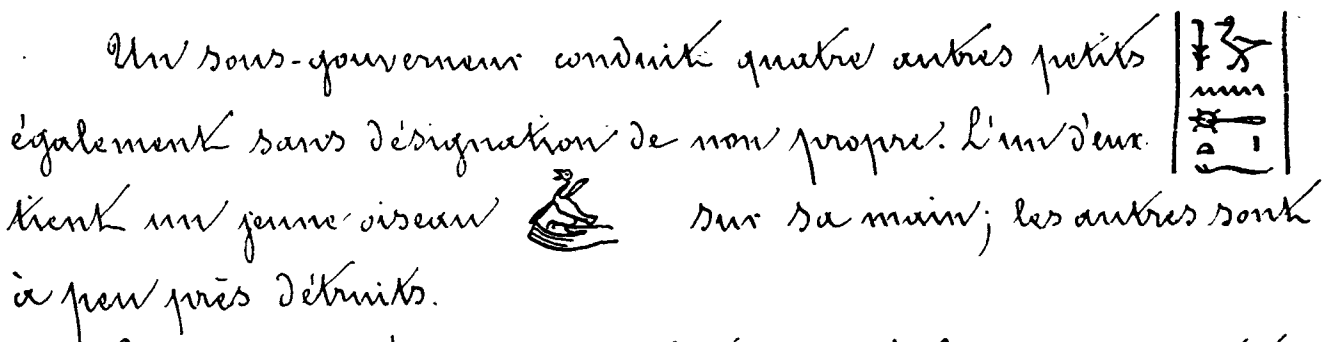 Un sous-gouverneur conduit quatre autres petits
également sans désignation de nom propre. L'un d'eux
tient un jeune oiseau sur sa main; les autres sont
à peu près détruits.